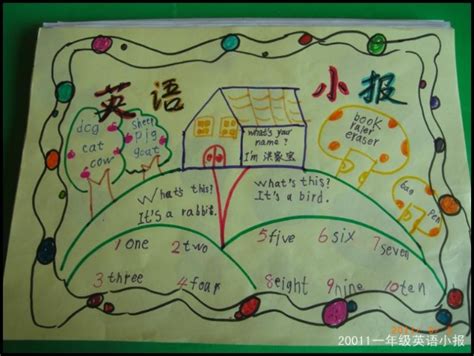 英语 小报
dcg
cat
cow
sheep
pig
goat
what's your
name?
I'm
book
ruler
eraser
pen
What's this?
It's a rabbit.
what's this?
It's a bird.
1 one 2 two 5 five 6 six 7 seven
3 three 4 four 8 eight 9 nine 10 ten
20011一年级英语小报